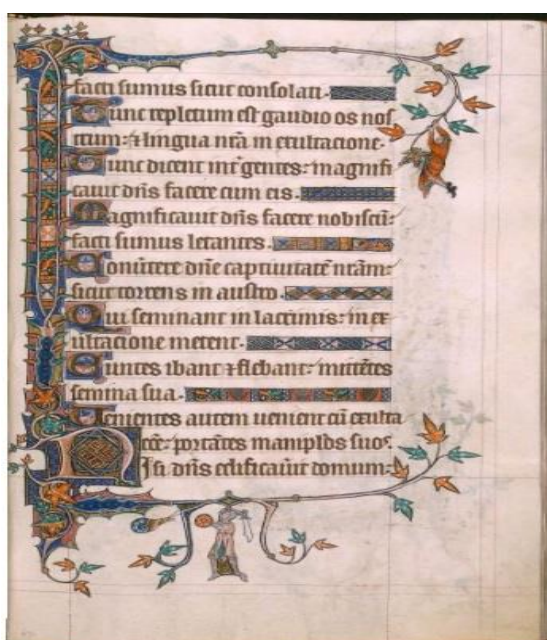 facti sumus sicut consolati.
Tunc repletum est gaudio os nos
trum: ⁊ lingua nr̄a in exultacione.
Tunc dicent int̉ gentes: magnifi
cauit dn̄s facere cum eis.
Magnificauit dn̄s facere nobiscū:
facti sumus letantes.
Conu̓tere dn̄e captiuitatē nr̄am:
sicut torrens in austro.
Qui seminant in lacrimis: in ex
ultacione metent.
Euntes ibant ⁊ flebant: mittētes
semina sua.
Uenientes autem uenient cū exulta
cōe: portātes manip̄ls suos.
Nisi dn̄s edificau̓it domum: